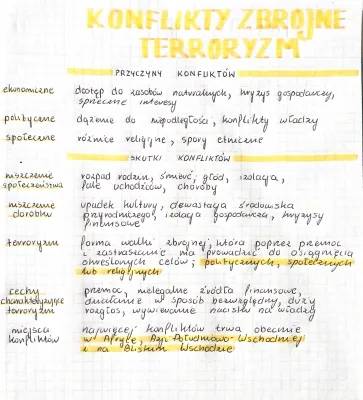 KONFLIKTY ZBROJNE
TERRORYZM
PRZYCZYNY KONFLIKTÓW
ekonomiczne dostęp do zasobów naturalnych, kryzys gospodarczy,
sprzeczne interesy
polityczne dążenie do niepodległości, konflikty władzy
społeczne różnice religijne, spory etniczne
SKUTKI KONFLIKTÓW
niszczenie rozpad rodzin, śmierć, głód, izolacja,
społeczeństwa fale uchodźców, choroby
niszczenie upadek kultury, dewastacja środowiska
dorobku przyrodniczego, izolacja gospodarcza, kryzysy
finansowe
terroryzm forma walki zbrojnej, która poprzez przemoc
i zastraszanie ma prowadzić do osiągnięcia
określonych celów; politycznych, społecznych
lub religijnych
cechy przemoc, nielegalne źródła finansowe,
charakteryzujące działanie w sposób bezwzględny, duży
terroryzm rozgłos, wywieranie nacisku na władzy
miejsca najwięcej konfliktów trwa obecnie
konfliktów w Afryce, Azji Południowo-Wschodniej
i na Bliskim Wschodzie